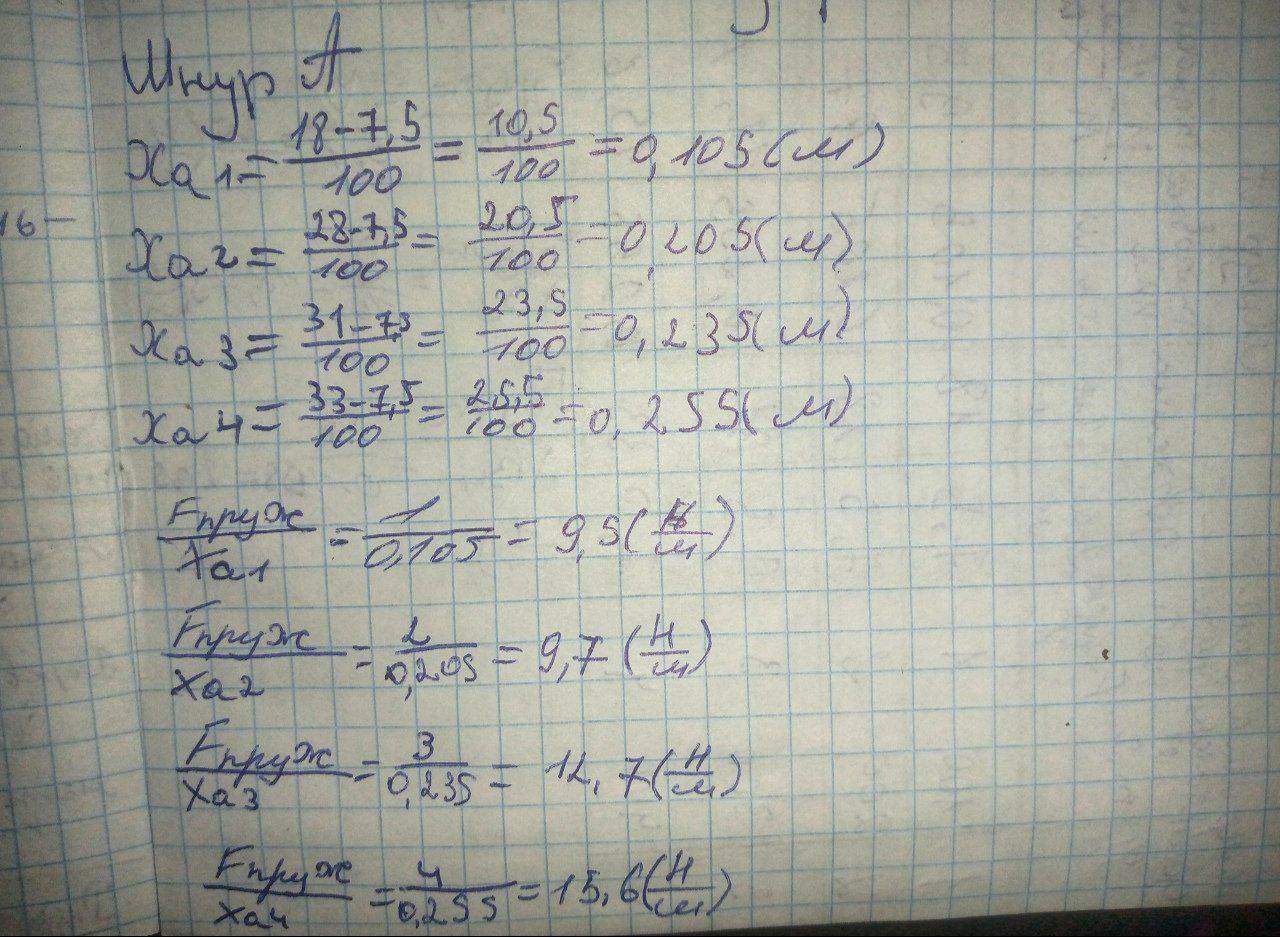 Шнур А
Xa1 = 18-7,5/100 = 10,5/100 = 0,105 (м)
16-
Xa2 = 28-7,5/100 = 20,5/100 = 0,205 (м)
Xa3 = 31-7,5/100 = 23,5/100 = 0,235 (м)
Xa4 = 33-7,5/100 = 25,5/100 = 0,255 (м)
Fпруж/Xa1 = 1/0,105 = 9,5 (Н/м)
Fпруж/Xa2 = 2/0,205 = 9,7 (Н/м)
Fпруж/Xa3 = 3/0,235 = 12,7 (Н/м)
Fпруж/Xa4 = 4/0,255 = 15,6 (Н/м)